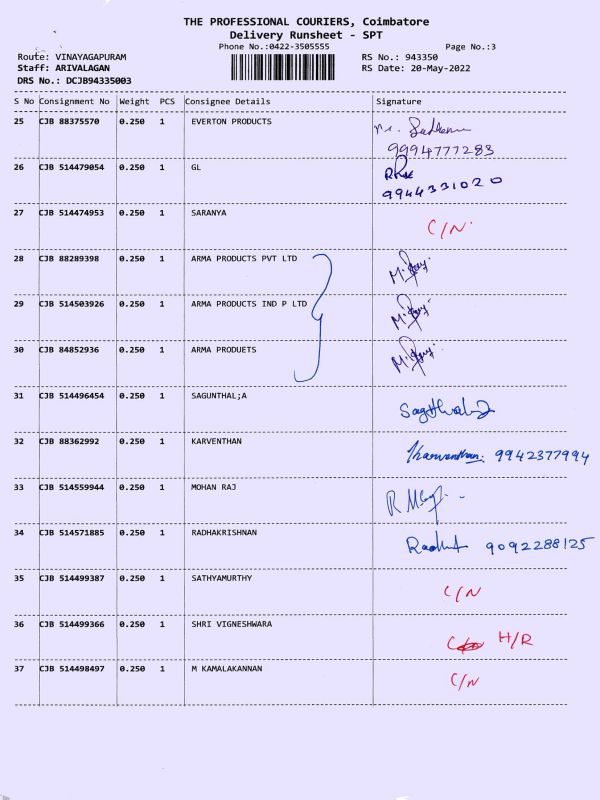 THE PROFESSIONAL COURIERS, Coimbatore
Delivery Runsheet - SPT
Phone No.:0422-3505555 Page No.:3
Route: VINAYAGAPURAM RS No.: 943350
Staff: ARIVALAGAN RS Date: 20-May-2022
DRS No.: DCJB94335003
S No Consignment No Weight PCS Consignee Details Signature
25 CJB 88375570 0.250 1 EVERTON PRODUCTS
9994777283
26 CJB 514479054 0.250 1 GL
9944331020
27 CJB 514474953 0.250 1 SARANYA C/N
28 CJB 88289398 0.250 1 ARMA PRODUCTS PVT LTD
29 CJB 514503926 0.250 1 ARMA PRODUCTS IND P LTD
30 CJB 84852936 0.250 1 ARMA PRODUETS
31 CJB 514496454 0.250 1 SAGUNTHAL;A
32 CJB 88362992 0.250 1 KARVENTHAN Kharventhan: 9942377994
33 CJB 514559944 0.250 1 MOHAN RAJ
34 CJB 514571885 0.250 1 RADHAKRISHNAN 9092288125
35 CJB 514499387 0.250 1 SATHYAMURTHY C/N
36 CJB 514499366 0.250 1 SHRI VIGNESHWARA H/R
37 CJB 514498497 0.250 1 M KAMALAKANNAN C/N